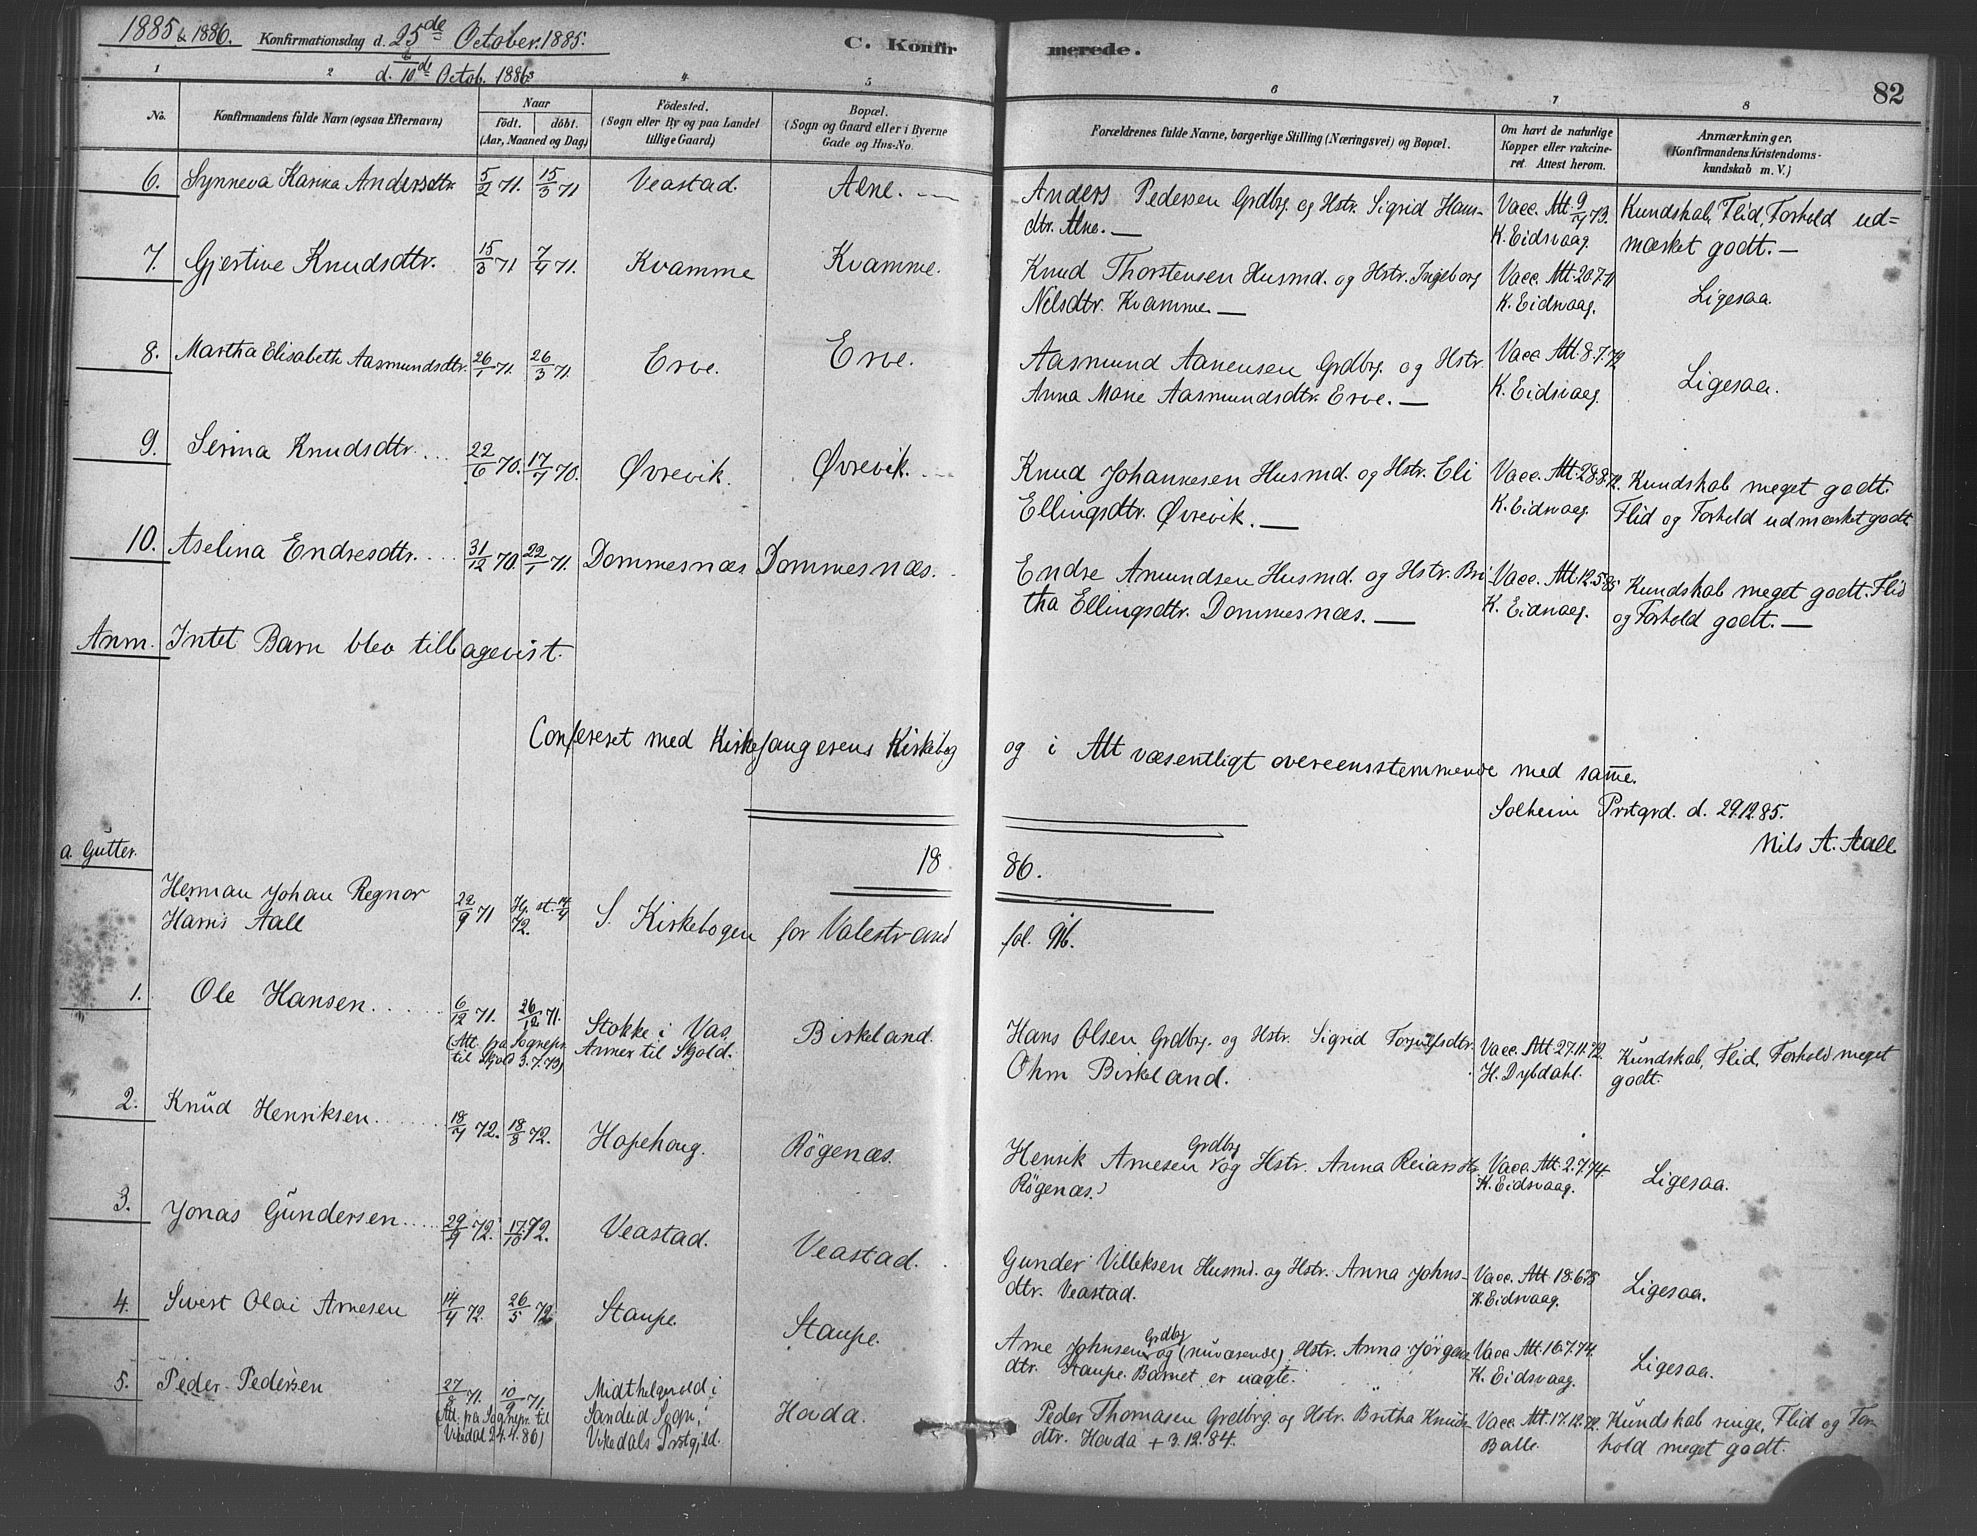 1885 & 1886. Konfirmationsdag d. 25de October 1885. C. Konfirmerede. 82
d. 10de Octob. 1886
1 2 3 4 5 6 7 8
No. Konfirmandens fulde Navn (ogsaa Efternavn)
Naar
födt. döbt.
(Aar, Maaned og Dag)
Födested.
(Sogn eller By og paa Landet
tillige Gaard)
Bopæl.
(Sogn og Gaard eller i Byerne
Gade og Hus-No.
Forældrenes fulde Navne, borgerlige Stilling (Næringsvei) og Bopæl.
Om havt de naturlige
Kopper eller vakcine-
ret. Attest herom.
Anmærkninger.
(Konfirmandens Kristendoms-
kundskab m. V.)
6. Synneva Karina Andersdtr. 5/2 71. 15/3 71 Veastad. Alne.
Anders Pedersen Grdbrg. og Hstr. Sigrid Hans-
dtr. Alne. —
Vacc. Att. 9/7 73.
K. Eidsvaag.
Kundskab, Flid, Forhold ud=
mærket godt. —
7. Gjertine Knudsdtr. 15/3 71 7/4 71. Kvamme Kvamme.
Knud Thorstensen Husmd. og Hstr. Ingeborg
Nelsdtr. Kvamme. —
Vacc. Att. 20.7.71
K. Eidsvaag.
Ligesaa.
8. Martha Elisabeth Aasmundsdtr. 26/1 71. 26/3 71. Erve. Erve.
Aasmund Aanensen Grdbrg. og Hstr.
Anna Marie Aasmundsdtr. Erve. —
Vacc. Att. 8.7.72
K. Eidsvaag.
Ligesaa.
9. Serina Knudsdtr. 22/6 70. 17/7 70. Øvrevik. Øvrevik.
Knud Johannesen Husmd. og Hstr. Eli
Ellingsdtr. Øvrevik. —
Vacc. Att. 28.8.72.
K. Eidsvaag.
Kundskab meget godt.
Flid og Forhold udmærket godt
10. Aselina Endresdtr. 31/12 70. 22/1 71. Dommesnæs Dommesnæs.
Endre Amundsen Husmd. og Hstr. Bri-
tha Ellingsdtr. Dommesnæs. —
Vacc. Att. 12.5.85
K. Eidsvaag.
Kundskab meget godt. Flid
og Forhold godt. —
Anm. Intet Barn blev tilbagevist.
Confereret med Kirkesangerens Kirkebog og i Alt væsentligt overeensstemmende med samme.
Solheim Prstgrd. d. 29.12.85.
Nils A. Aall
a. Gutter. 1886.
Herman Johan Regnor
Harris Aall 22/9 71 Hj. st. 14/4
72. S. Kirkebogen for Valestrand fol. 96.
1. Ole Hansen 6/12 71. 26/12 71.
(Att. fra Sognepr.
til Skjold 3.7.73)
Stokke i Vas.
Annex til Skjold.
Birkeland.
Hans Olsen Grdbrg. og Hstr. Sigrid
Ohm Birkeland.
Vacc. Att. 27.11.72.
H. Dybdahl.
Kundskab, Flid, Forhold meget
godt.
2. Knud Henriksen 18/7 72. 18/8 72. Hopehaug. Rögenæs.
Henrik Arnesen Grdbrg og Hstr. Anna Reiarsdtr.
Rögenæs.
Vacc. Att. 2.7.74.
K. Eidsvaag.
Ligesaa.
3. Jonas Gundersen 29/9 72. 17/10 72. Veastad. Veastad.
Gunder Villeksen Husmd. og Hstr. Anna Johns-
dtr. Veastad.
Vacc. Att. 18.6.78
K. Eidsvaag.
Ligesaa.
4. Sivert Olai Arnesen 14/4 72. 26/5 72. Staupe. Staupe.
Arne Johnsen Grdbrg og (nuværende) Hstr. Anna Jörgens-
dtr. Staupe. Barnet er uægte.
Vacc. Att. 16.7.74.
K. Eidsvaag.
Ligesaa.
5. Peder Pedersen 27/8 71. 10/9 71.
(Att. fra Sognepr. til
Vikedal 24.4.86)
Midthelgevold i
Sandeid Sogn,
Vikedals Prstgjeld.
Hovda.
Peder Thomasen Grdbrg. og Hstr. Britha Knuds-
dtr. Hovda + 3.12.84.
Vacc. Att. 17.12.72.
Balle.
Kundskab ringe, Flid og For-
hold meget godt.